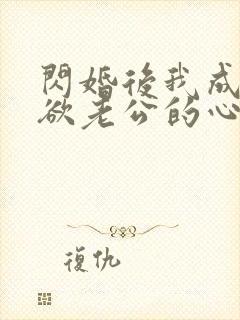 閃婚後我成
欲老公的心
復仇